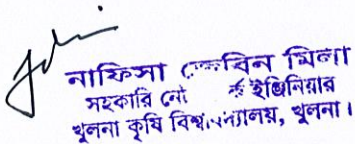 নাফিসা জেবিন মিলা
সহকারি নেটওয়ার্ক ইঞ্জিনিয়ার
খুলনা কৃষি বিশ্ববিদ্যালয়, খুলনা।